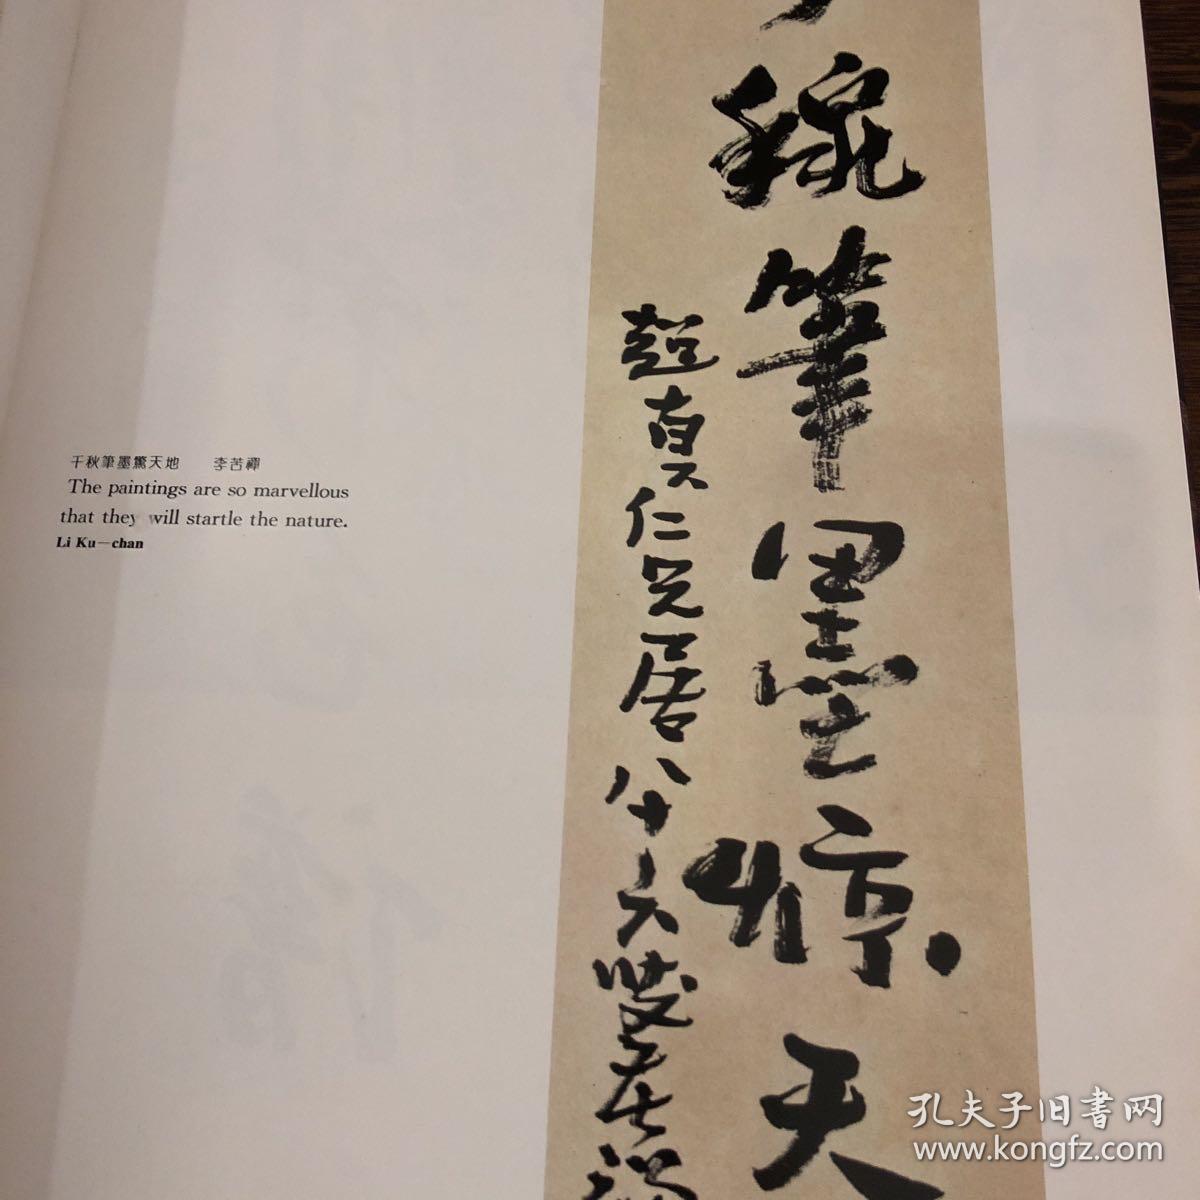 千秋筆墨驚天地 李苦禪
The paintings are so marvellous
that they will startle the nature.
Li Ku—chan
穐筆墨惊天
超真仁兄居八十六
孔夫子旧書网
www.kongfz.com